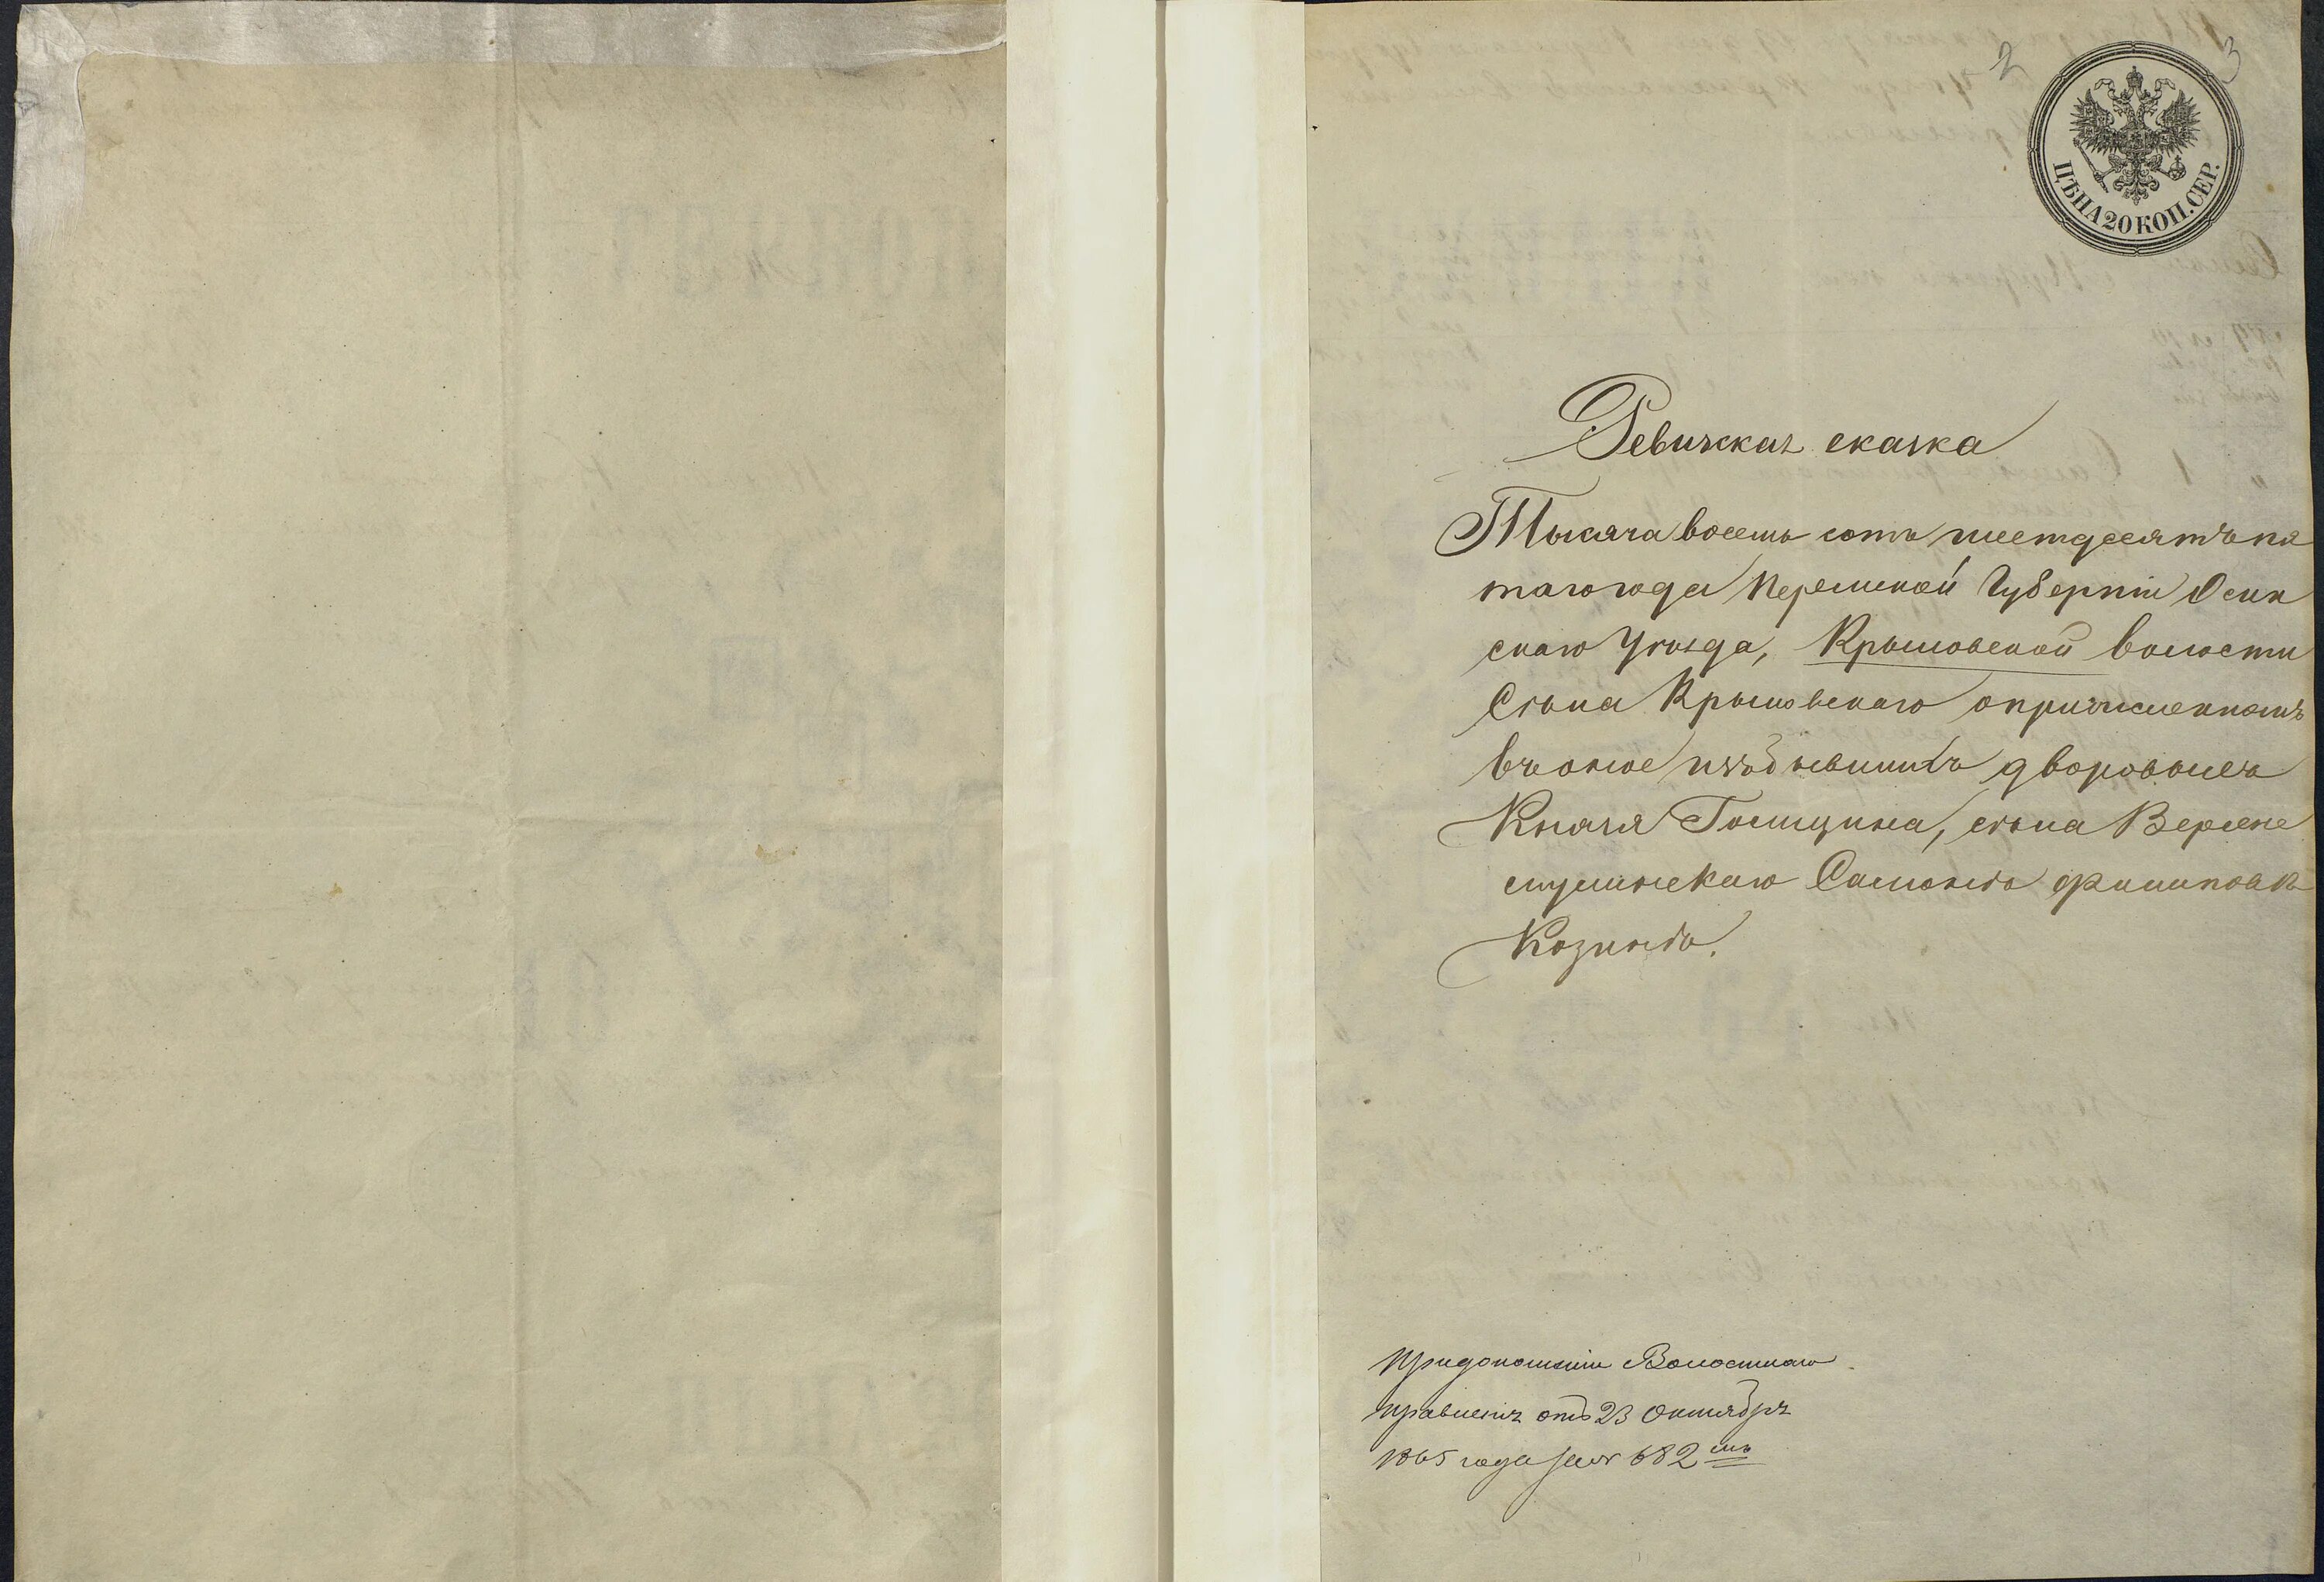 2
3
ЦѢНА 20 КОП. СЕР.
Ревизская сказка
Тысяча восемь сотъ шестдесятъ пя
таго года Пермской Губерніи Осин
скаго Уѣзда, Крыловской волости
Села Крыловскаго о причисленномъ
въ оное изъ бывшихъ дворовыхъ
Князя Голицына, села Верхне
муллинскаго Самонѣ Филиповѣ
Козинѣ.
При доношеніи Волостнаго
правленія отъ 23 Октября
1865 года за № 682 мъ